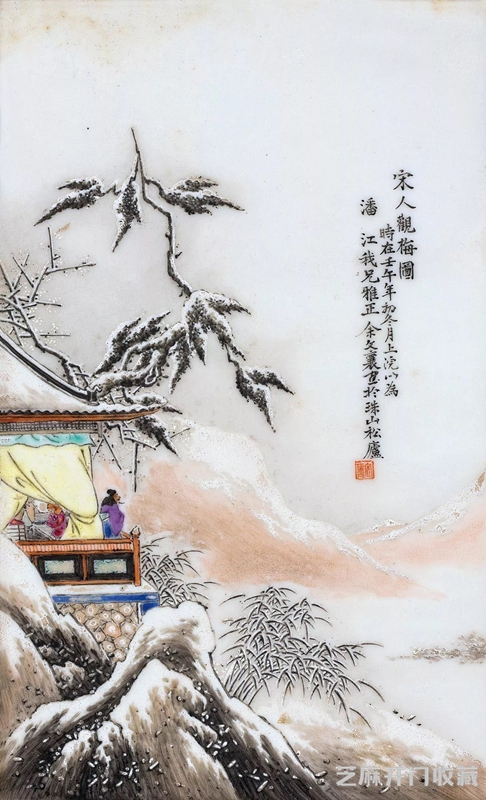 宋人觀梅圖
時在壬午年初冬月上浣以為
潘江我兄雅正余文襄画於珠山松廬
芝麻开门收藏